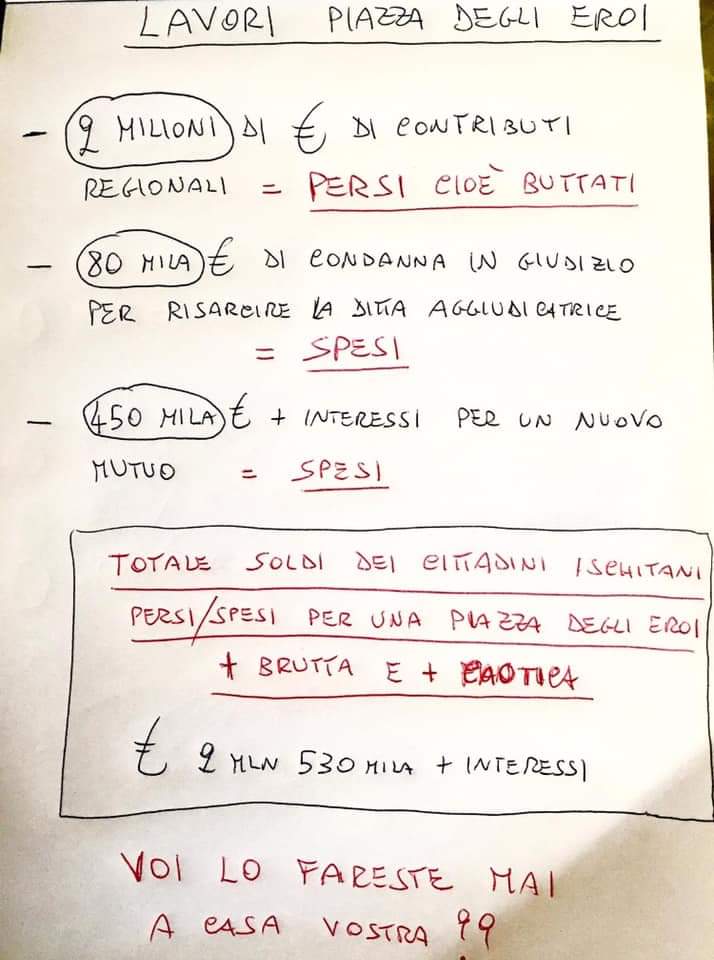 LAVORI PIAZZA DEGLI EROI
- 2 MILIONI DI € DI CONTRIBUTI
REGIONALI = PERSI CIOÈ BUTTATI
- 80 MILA € DI CONDANNA IN GIUDIZIO
PER RISARCIRE LA DITTA AGGIUDICATRICE
= SPESI
- 450 MILA € + INTERESSI PER UN NUOVO
MUTUO = SPESI
TOTALE SOLDI DEI CITTADINI ISCHITANI
PERSI/SPESI PER UNA PIAZZA DEGLI EROI
+ BRUTTA E + CAOTICA
€ 2 MLN 530 MILA + INTERESSI
VOI LO FARESTE MAI
A CASA VOSTRA ??